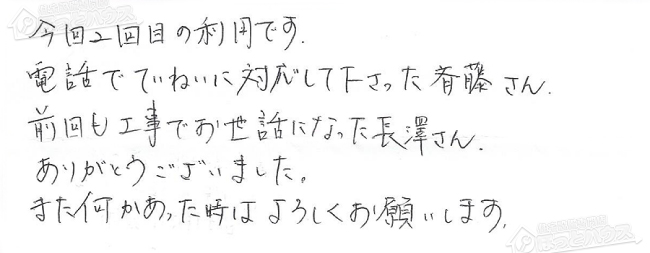 今回2回目の利用です.
電話でていねいに対応して下さった斉藤さん.
前回も工事でお世話になった長澤さん.
ありがとうございました。
また何かあった時はよろしくお願いします.